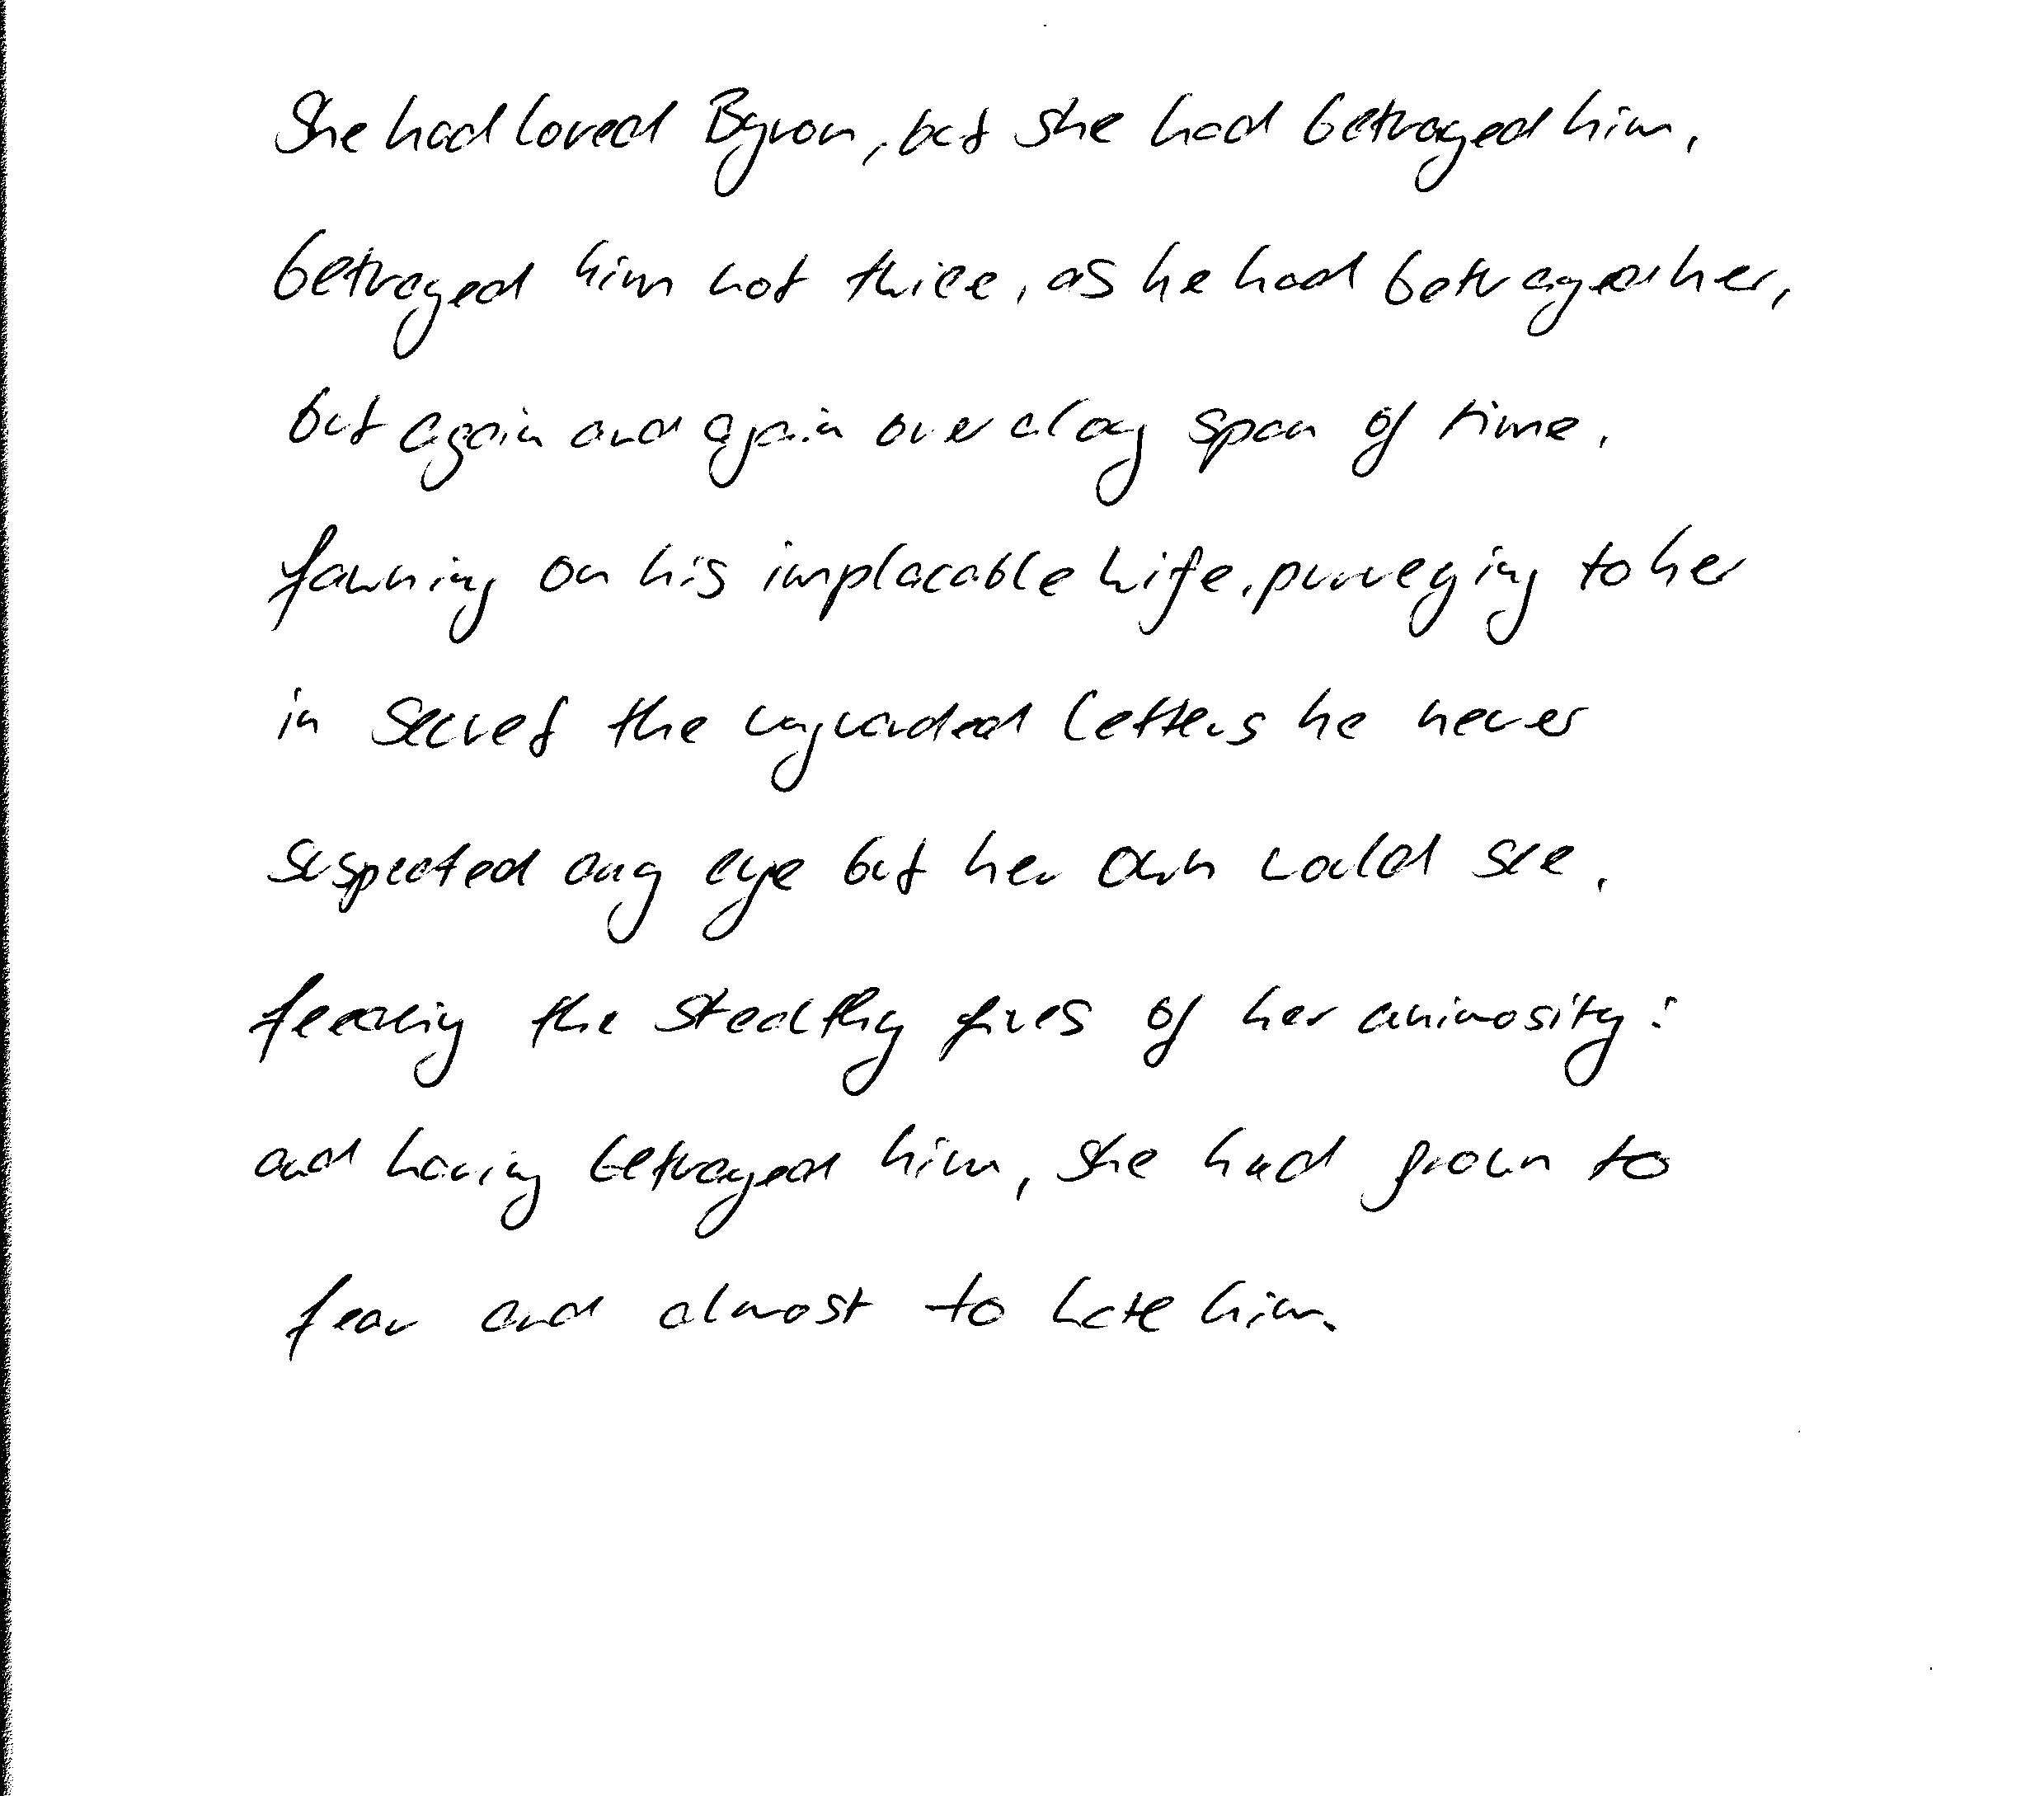 She had loved Byron, but she had betrayed him,
betrayed him not thrice, as he had betrayed her,
but again and again over a long span of time,
fawning on his implacable wife, purveying to her
in secret the unguarded letters he never
suspected any eye but her own would see,
feeding the stealthy fires of her animosity:
and having betrayed him, she had grown to
fear and almost to hate him.